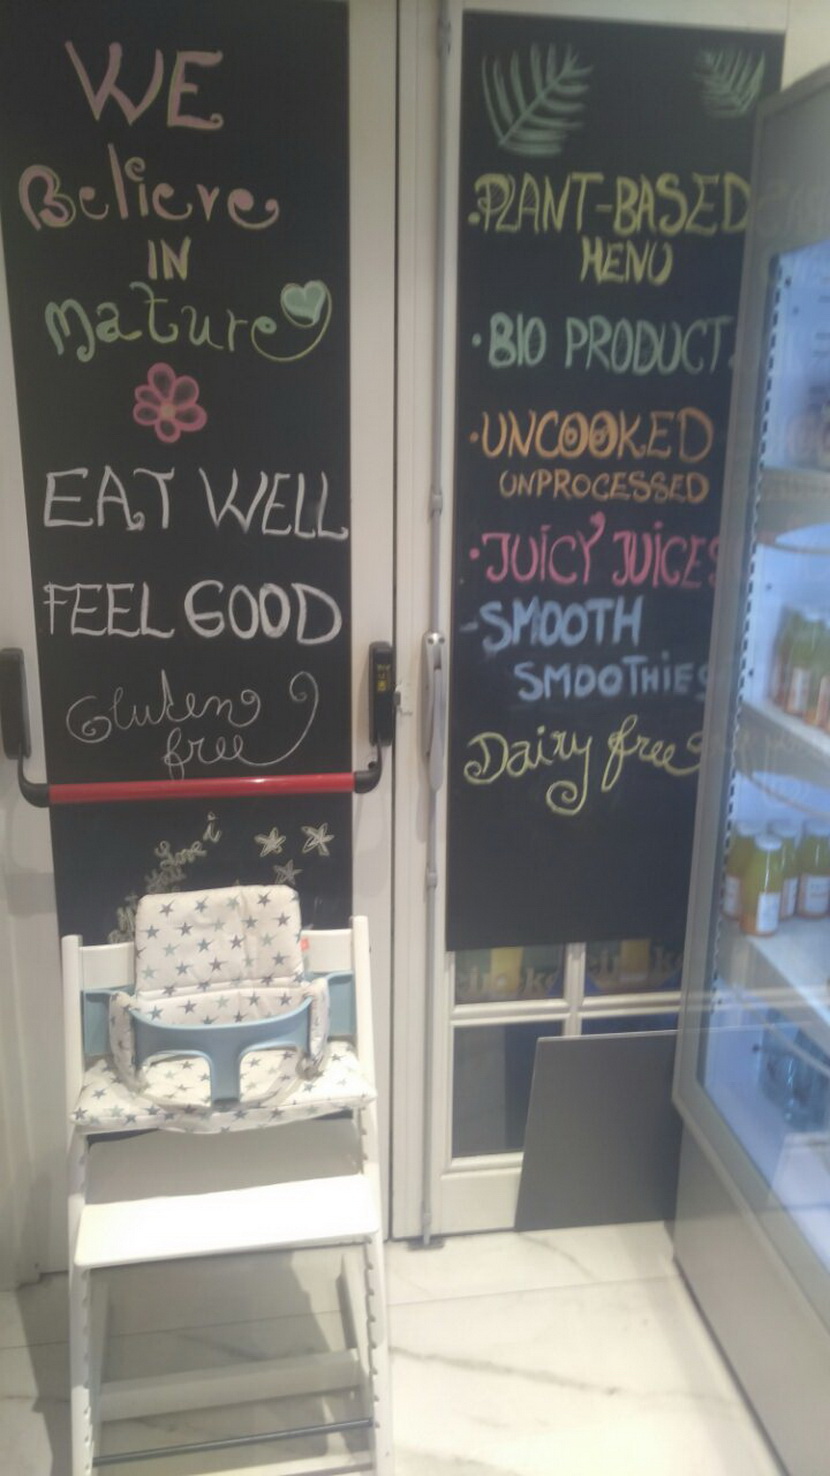 WE
Believe
IN
Nature
EAT WELL
FEEL GOOD
Gluten
free
i
Love
you
• PLANT-BASED
MENU
• BIO PRODUCT
• UNCOOKED
UNPROCESSED
• JUICY JUICES
- SMOOTH
SMOOTHIES
Dairy free